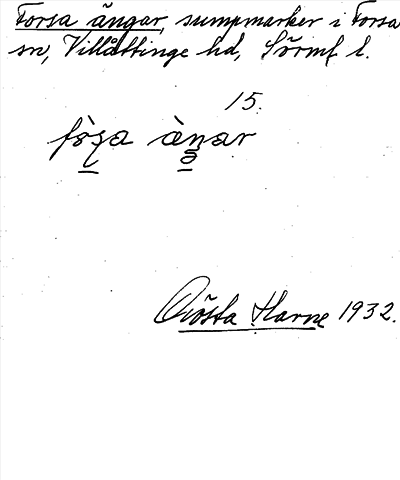 Forsa ängar, sumpmarker i Forsa
sn, Villåttinge hd, Sörmf l.
15.
Gösta Harne 1932.